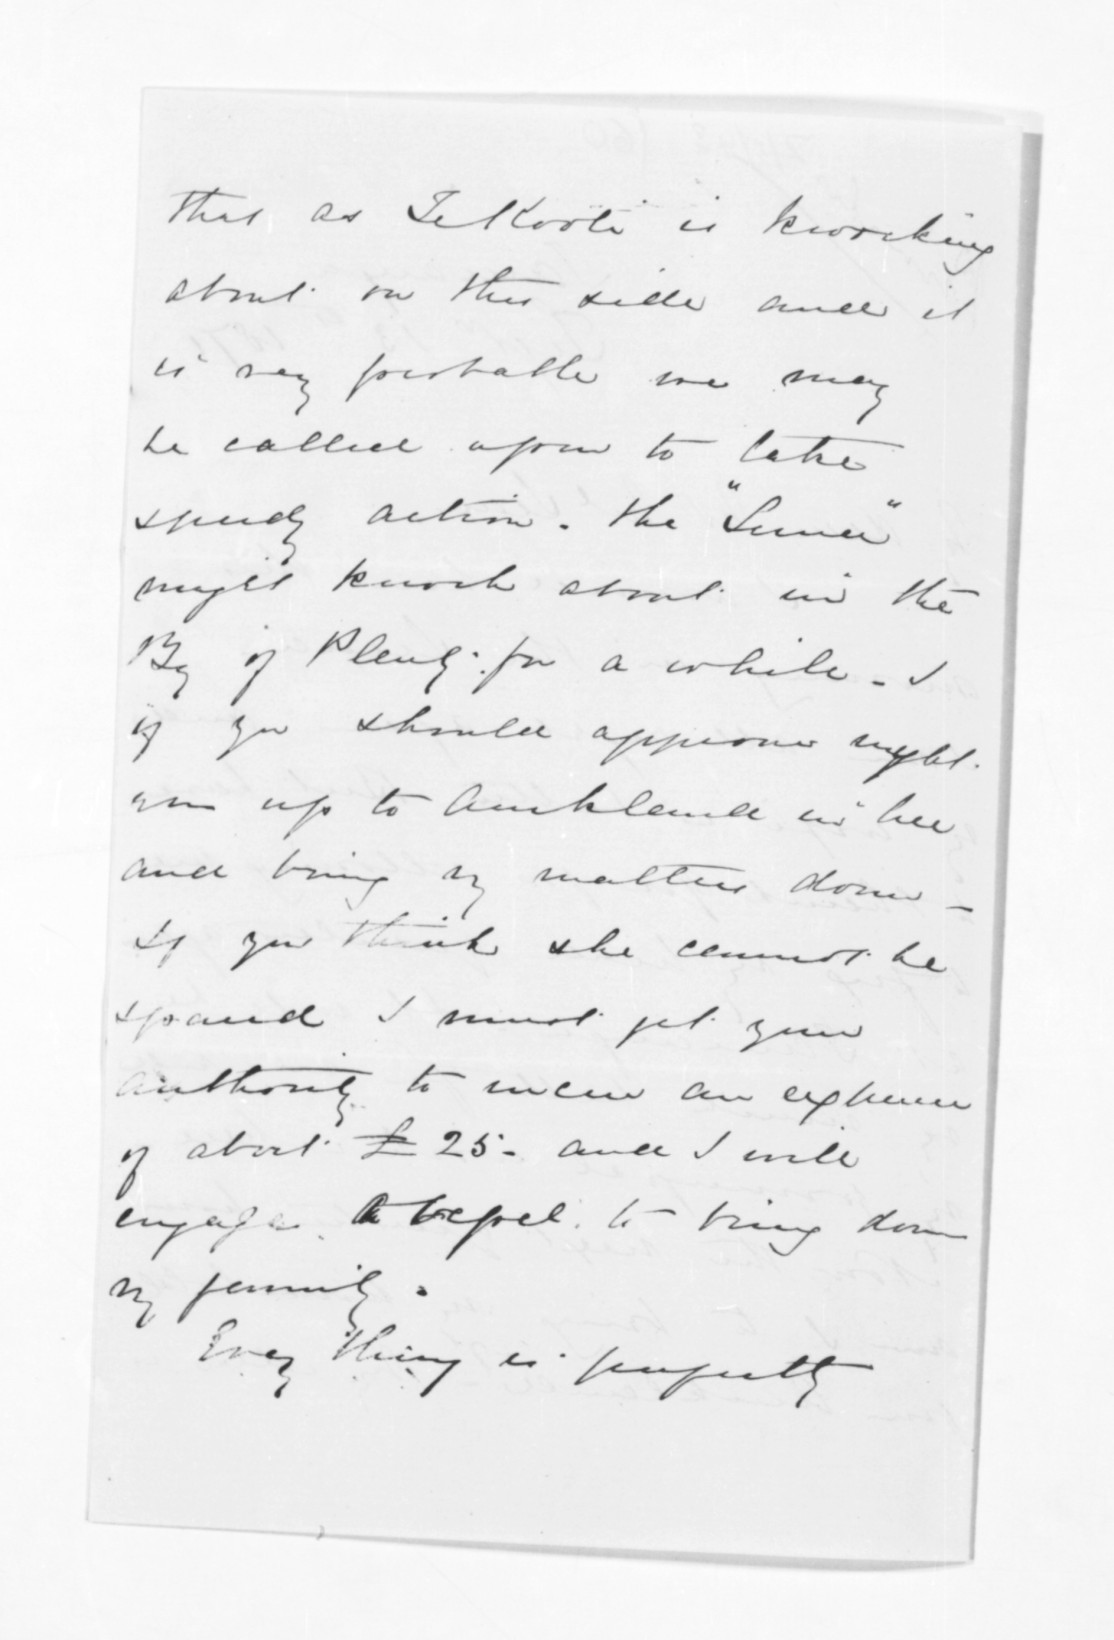 that as Te Kooti is knocking
about on this side and it
is very probable we may
be called upon to take
speedy action. the "Luna"
might knock about in the
Bay of Plenty for a while. I
if you should approve might
run up to Auckland in her
and bring my matters down _
If you think she cannot be
spared I must get your
authority to incur an expense
of about £25. and I will
engage a vessel to bring down
my family.
Every thing is perfectly